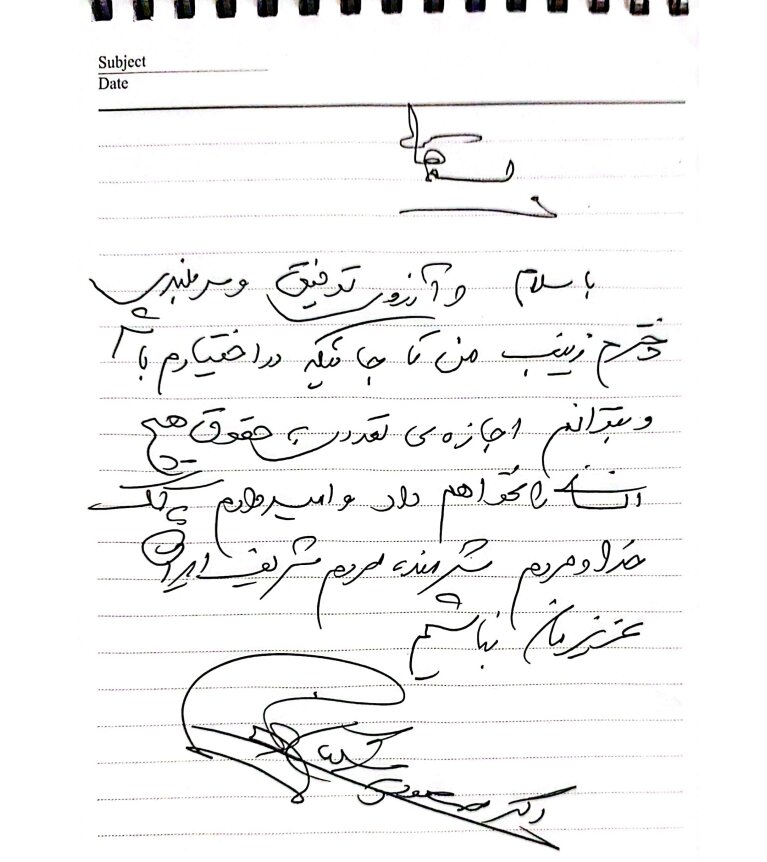 Subject
Date
بسمه تعالی
با سلام و آرزوی توفیق و سربلندی
دخترم زینب من تا جائیکه در اختیارم باشد
و بتوانم اجازه ی تعدی به حقوق هیچ
انسانی را نخواهم داد و امیدوارم به کمک
خدا و مردم شرمنده مردم شریف ایران
عزیزمان نباشم
دکتر مسعود